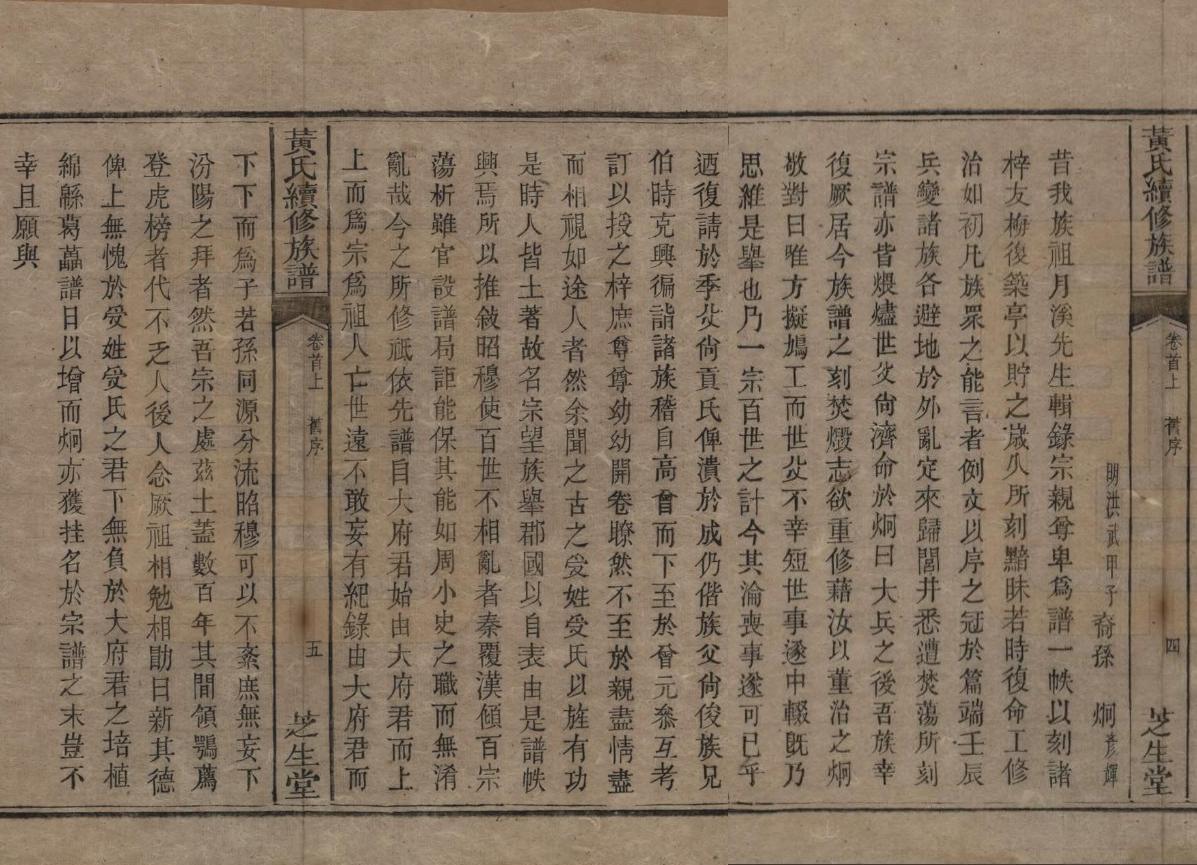 黃氏續修族譜 卷首上 舊序 四 芝生堂
明洪武甲子 裔孫 炯彥輝
昔我族祖月溪先生輯錄宗親尊卑爲譜一帙以刻諸
梓友梅復築亭以貯之歲久所刻黯昧若時復命工修
治如初凡族眾之能言者例文以序之冠於篇端壬辰
兵變諸族各避地於外亂定來歸閭井悉遭焚蕩所刻
宗譜亦皆煨燼世父尙濟命於炯曰大兵之後吾族幸
復厥居今族譜之刻焚燬志欲重修藉汝以董治之炯
敬對曰唯方擬鳩工而世父不幸短世事遂中輟旣乃
思維是舉也乃一宗百世之計今其淪喪事遂可已乎
迺復請於季父尙貢氏俾潰於成仍偕族父尙俊族兄
伯時克興徧詣諸族稽自高曾而下至於曾元叅互考
訂以授之梓庶尊尊幼幼開卷瞭然不至於親盡情盡
而相視如途人者然余聞之古之受姓受氏以旌有功
是時人皆土著故名宗望族舉郡國以自表由是譜帙
興焉所以推敘昭穆使百世不相亂者秦覆漢傾百宗
蕩析雖官設譜局詎能保其能如周小史之職而無淆
亂哉今之所修祇依先譜自大府君始由大府君而上
上而爲宗爲祖人亡世遠不敢妄有紀錄由大府君而
黃氏續修族譜 卷首上 舊序 五 芝生堂
下下而爲子若孫同源分流昭穆可以不紊庶無妄下
汾陽之拜者然吾宗之處茲土蓋數百年其間領鶚薦
登虎榜者代不乏人後人念厥祖相勉相勖日新其德
俾上無愧於受姓受氏之君下無負於大府君之培植
綿緜葛藟譜日以增而炯亦獲挂名於宗譜之末豈不
幸且願與